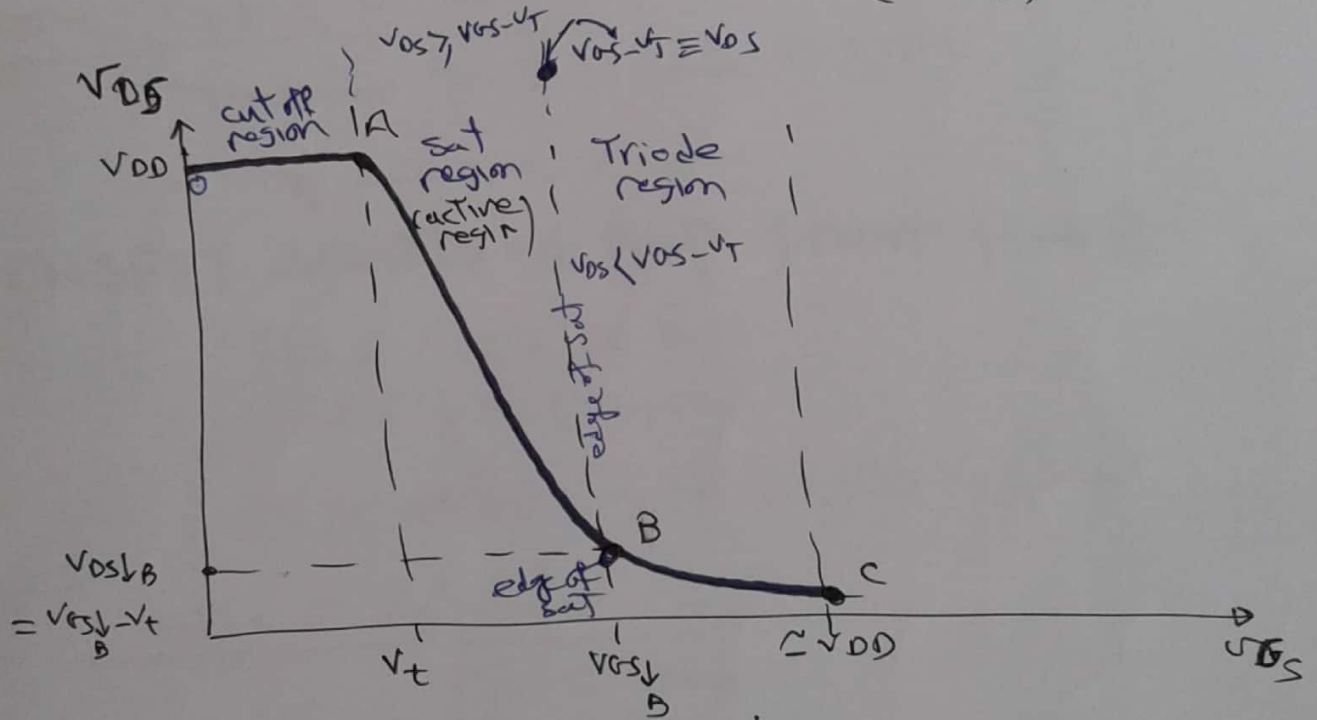 VDS ≥ VGS-VT
VGS-VT ≡ VDS
VDS
cut off
region
A
VDD
Sat
region
(active
regin)
Triode
region
VDS < VGS-VT
edge of sat
B
VDS↓B
= VGS↓B-Vt
edge of
sat
C
Vt
VGS↓
B
≃ VDD
VGS